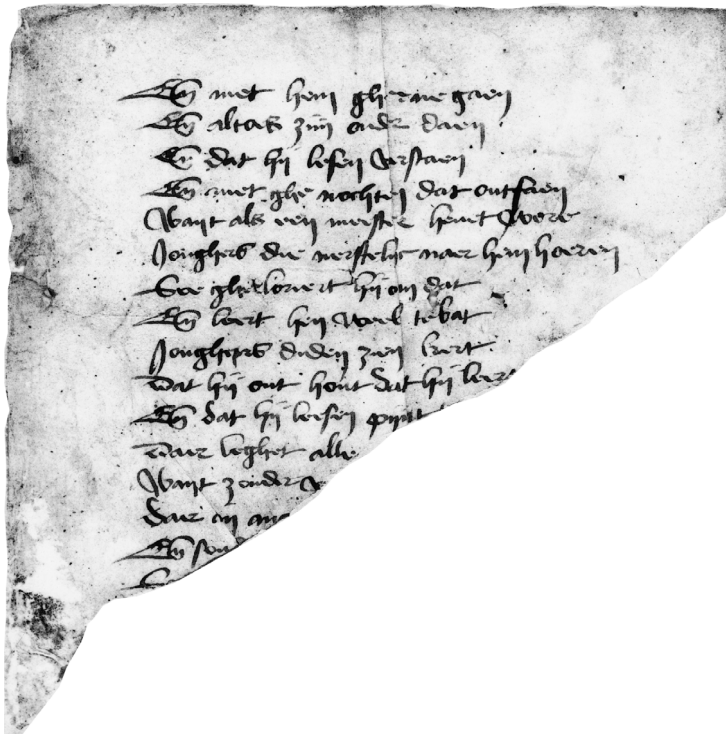 En̄ met hem gherne gaen
En̄ altoes zijn onder daen
En̄ dat hij lesen verstaen
En̄ met ghe nochten dat ontfaen
Want als een meester heuet vore
Jonghers die nerstelijc naer hem hoeren
Soe ghelvriert hij om dat
En̄ leert hen weel te bat
Jonghers duden zien leert
Dat hij ont hout dat hij leert
En̄ dat hij lesen pijnt
Daer leghet alle
Want zonder
daer in
En̄